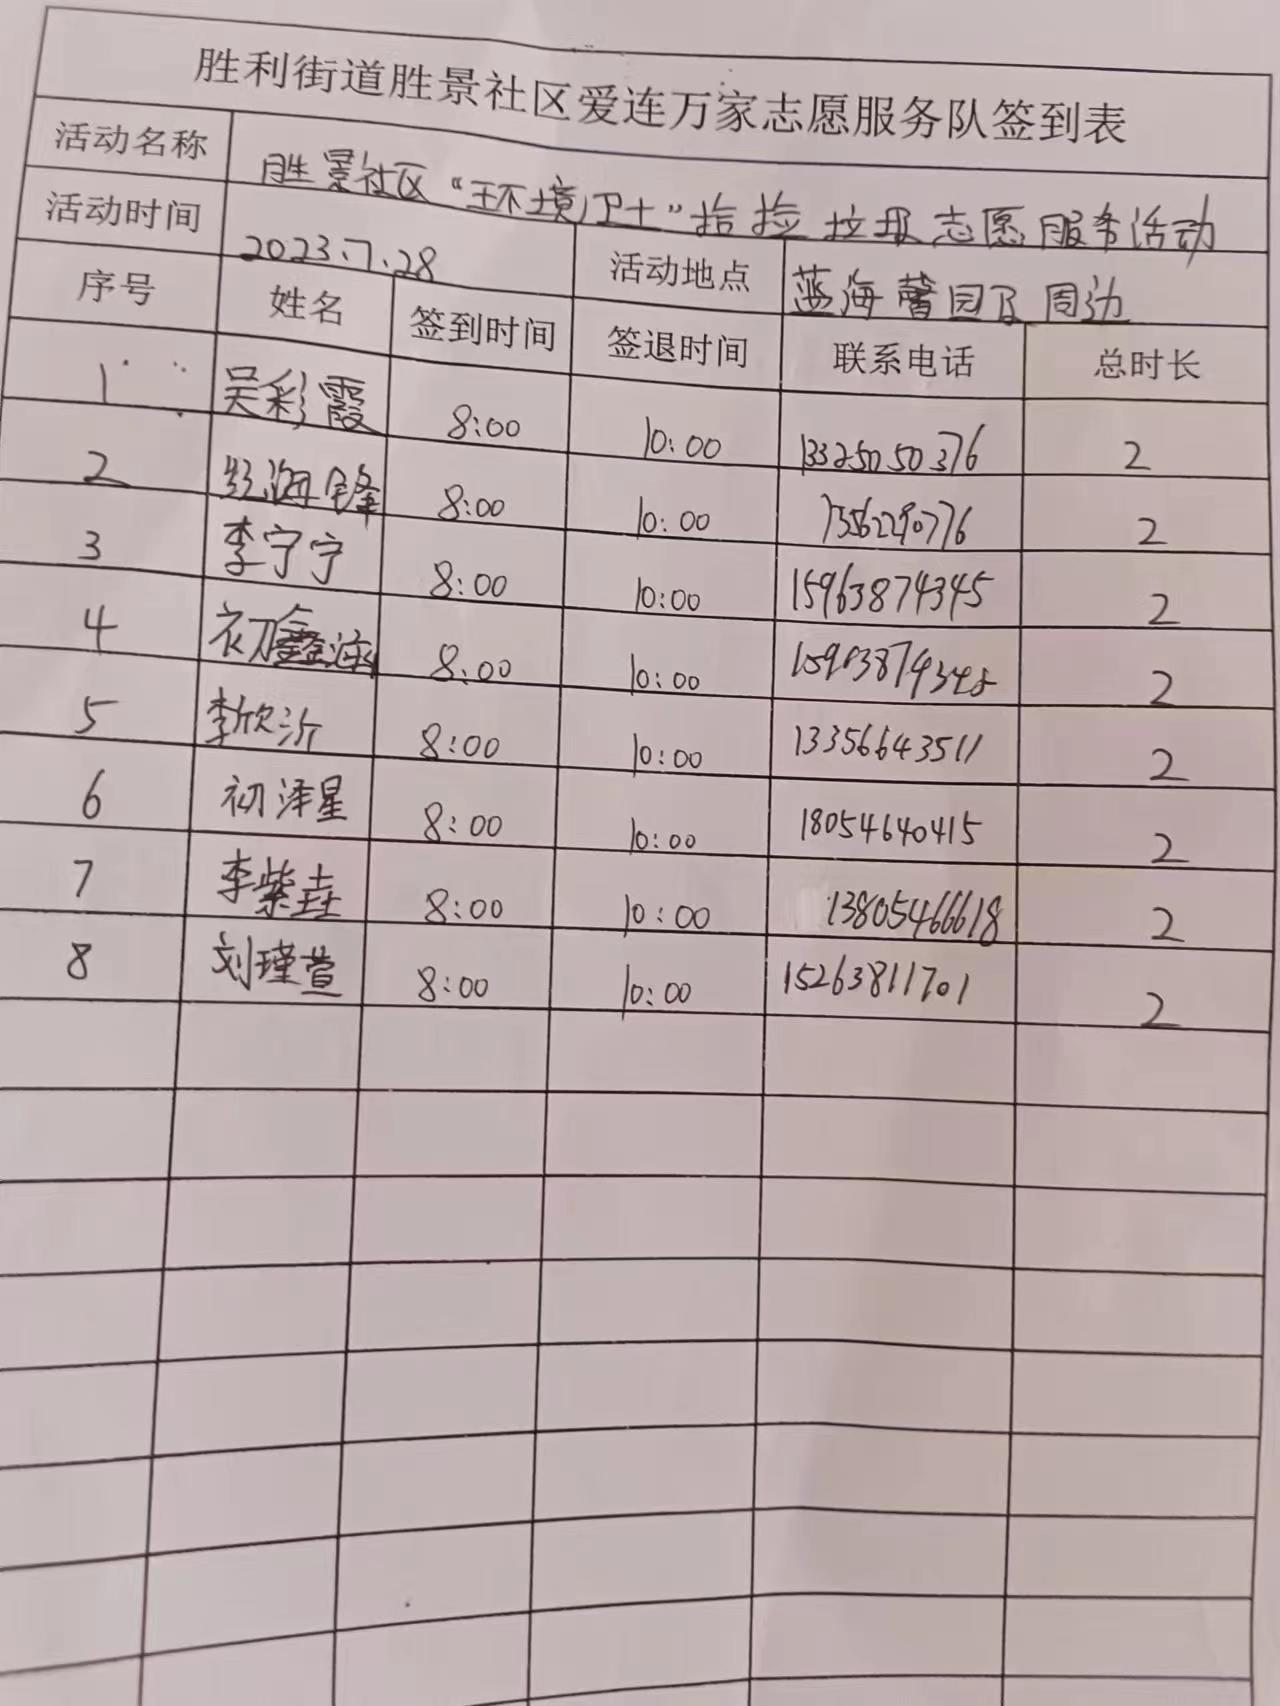 胜利街道胜景社区爱连万家志愿服务队签到表
活动名称 胜景社区“环境卫士”拾捡垃圾志愿服务活动
活动时间 2023.7.28 活动地点 蓝海馨园及周边
序号 姓名 签到时间 签退时间 联系电话 总时长
1 吴彩霞 8:00 10:00 13325050376 2
2 海锋 8:00 10:00 2
3 李宁宁 8:00 10:00 15963874345 2
4 初鑫 8:00 10:00 2
5 李欣沂 8:00 10:00 13356643511 2
6 初泽星 8:00 10:00 18054640415 2
7 李紫垚 8:00 10:00 13805466618 2
8 刘瑾萱 8:00 10:00 15263811701 2